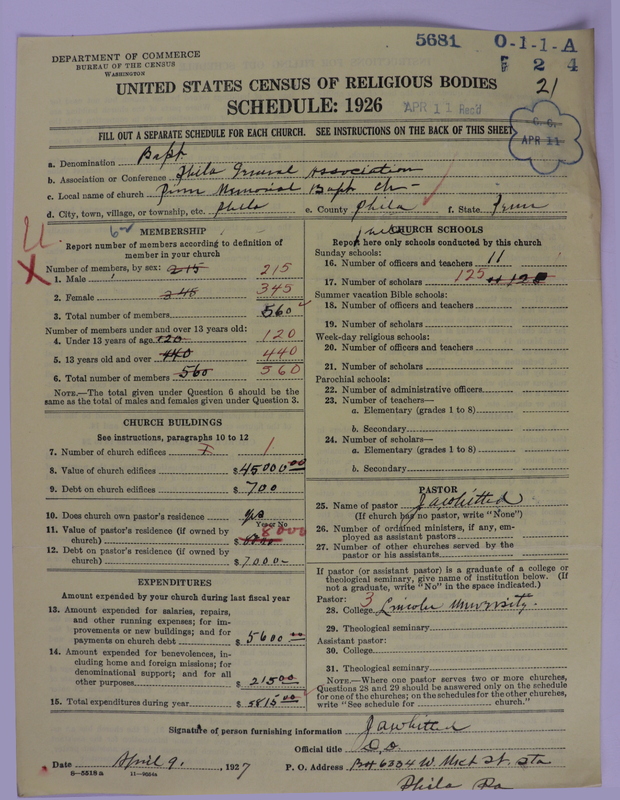 5681 0-1-1-A
F 2 4
21
DEPARTMENT OF COMMERCE
BUREAU OF THE CENSUS
WASHINGTON
UNITED STATES CENSUS OF RELIGIOUS BODIES
SCHEDULE: 1926
APR 11 Rec'd
C. C.
APR 11
FILL OUT A SEPARATE SCHEDULE FOR EACH CHURCH. SEE INSTRUCTIONS ON THE BACK OF THIS SHEET
a. Denomination Bapt
b. Association or Conference Phila General Association
c. Local name of church Memorial Bapt Ch-
d. City, town, village, or township, etc. Phila e. County Phila f. State Penn
MEMBERSHIP
Report number of members according to definition of
member in your church
Number of members, by sex:
1. Male 215 215
2. Female 345 345
3. Total number of members 560
Number of members under and over 13 years old:
4. Under 13 years of age 120 120
5. 13 years old and over 440 440
6. Total number of members 560 560
NOTE.—The total given under Question 6 should be the
same as the total of males and females given under Question 3.
CHURCH BUILDINGS
See instructions, paragraphs 10 to 12
7. Number of church edifices 1 1
8. Value of church edifices $45000 00
9. Debt on church edifices $700
10. Does church own pastor's residence? yes
Yes or No
11. Value of pastor's residence (if owned by
church) $ 8000
12. Debt on pastor's residence (if owned by
church) $7000-
EXPENDITURES
Amount expended by your church during last fiscal year
13. Amount expended for salaries, repairs,
and other running expenses; for im-
provements or new buildings; and for
payments on church debt $5600 00
14. Amount expended for benevolences, in-
cluding home and foreign missions; for
denominational support; and for all
other purposes $215 00
15. Total expenditures during year $5815 00
CHURCH SCHOOLS
Report here only schools conducted by this church
Sunday schools:
16. Number of officers and teachers 11
17. Number of scholars 125
Summer vacation Bible schools:
18. Number of officers and teachers
19. Number of scholars
Week-day religious schools:
20. Number of officers and teachers
21. Number of scholars
Parochial schools:
22. Number of administrative officers
23. Number of teachers—
a. Elementary (grades 1 to 8)
b. Secondary
24. Number of scholars—
a. Elementary (grades 1 to 8)
b. Secondary
PASTOR
25. Name of pastor J A Whitted
(If church has no pastor, write "None")
26. Number of ordained ministers, if any, em-
ployed as assistant pastors
27. Number of other churches served by the
pastor or his assistants
If pastor (or assistant pastor) is a graduate of a college or
theological seminary, give name of institution below. (If
not a graduate, write "No" in the space indicated.)
Pastor: 3
28. College Lincoln University.
29. Theological seminary
Assistant pastor:
30. College
31. Theological seminary
NOTE.—Where one pastor serves two or more churches,
Questions 28 and 29 should be answered only on the schedule
for one of the churches; on the schedules for the other churches,
write "See schedule for church."
Signature of person furnishing information J A Whitted
Official title D.D
Date April 9, 1927 P. O. Address Box 6304 W. Mkt St. Sta
8-5518 a
Phila Pa